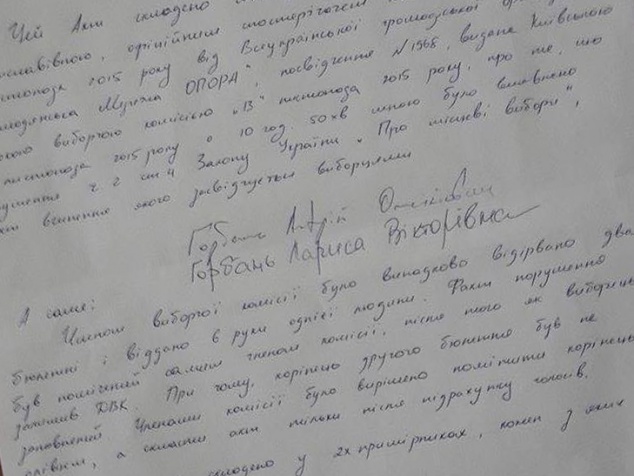 Цей Акт складено
офіційним спостерігачем
листопада 2015 року від Всеукраїнської громадської
Мережа ОПОРА", посвідчення №1968, видане Київською
виборчою комісією "13" листопада 2015 року, про те, що
листопада 2015 року о 10 год. 50 хв мною було виявлено
ч. 2 ст. 4 Закону України "Про місцеві вибори",
вчинення якого засвідчується виборцями
Горбань
Горбань Лариса Вікторівна
А саме:
Членом виборчої комісії було випадково відірвано два
бюлетні і віддано в руки однієї людини. Факт порушення
був помічений самим членом комісії, після того як виборець
залишив ДВК. При чому, корінець другого бюлетня був не
заповнений. Членами комісії було вирішено помітити корінець
олівцем, а скласти акт тільки після підрахунку голосів.
складено у 2х примірниках, кожен з яких